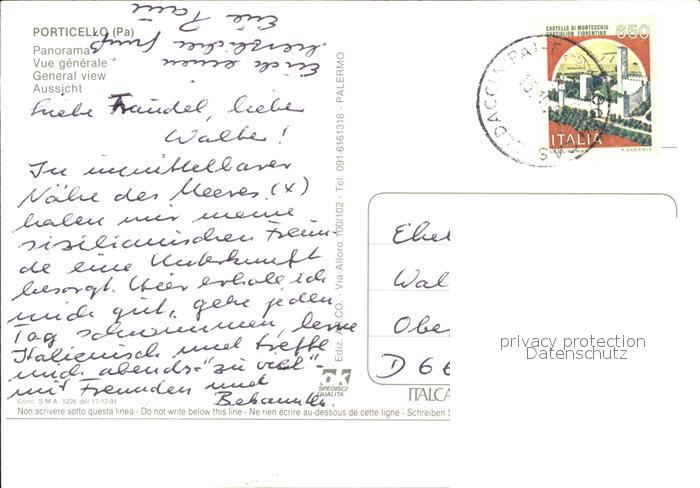 PORTICELLO (Pa)
Panorama
Vue générale
General view
Aussicht
Liebe Traudel, lieber
Walter!
In unmittelbarer
Nähe des Meeres (x)
haben mir meine
sizilianischen Freun-
de eine Unterkunft
besorgt. Hier erhole ich
mich gut, gehe jeden
Tag schwimmen, lerne
Italienisch und treffe
mich abends "zu viel"
mit Freunden und
Bekannten.
Euch einen
herzlichen Gruß
Eure
Ediz. AR.CO. - Via Alloro 100/102 - Tel. 091-6161318 - PALERMO
ok
SPEDISCI
QUALITÀ
Conc. S.M.A. 1226 del 17-12-91
Non scrivere sotto questa linea - Do not write below this line - Ne rien écrire au-dessous de cette ligne - Schreiben S
ITALCA
CASTELLO DI MONTECCHIO
CASTIGLION FIORENTINO
650
ITALIA
Wal
Obe
D 66
privacy protection
Datenschutz